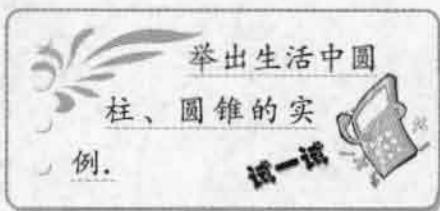 举出生活中圆
柱、圆锥的实
例.
试一试